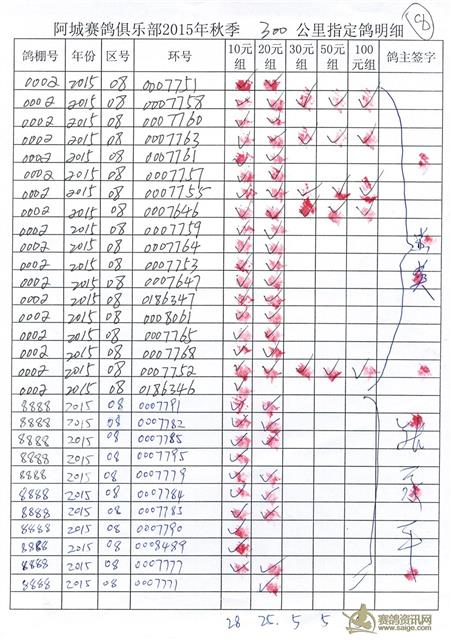 阿城赛鸽俱乐部2015年秋季 300 公里指定鸽明细 8
鸽棚号 年份 区号 环号 10元组 20元组 30元组 50元组 100元组 鸽主签字
0002 2015 08 0007751 ✓ ✓
0002 2015 08 0007758 ✓ ✓ ✓ ✓ ✓
0002 2015 08 0007760 ✓ ✓
0002 2015 08 0007763 ✓ ✓ ✓ ✓ ✓
0002 2015 08 0007761 ✓ ✓
0002 2015 08 0007757 ✓ ✓
0002 2015 08 0007755 ✓ ✓ ✓ ✓ ✓
0002 2015 08 0007646 ✓ ✓ ✓ ✓ ✓
0002 2015 08 0007759 ✓ ✓
0002 2015 08 0007764 ✓ ✓
0002 2015 08 0007753 ✓ ✓
0002 2015 08 0007647 ✓ ✓
0002 2015 08 0186347 ✓ ✓
0002 2015 08 0008061 ✓ ✓
0002 2015 08 0007765 ✓ ✓
0002 2015 08 0007768 ✓ ✓
0002 2015 08 0007752 ✓ ✓ ✓ ✓ ✓
0002 2015 08 0186346 ✓
8888 2015 08 0007791 ✓ ✓
8888 2015 08 0007782 ✓ ✓
8888 2015 08 0007785 ✓ ✓
8888 2015 08 0007795 ✓
8888 2015 08 0007779 ✓ ✓
8888 2015 08 0007784 ✓ ✓
8888 2015 08 0007783 ✓ ✓
8888 2015 08 0007790 ✓
8888 2015 08 0008489 ✓
8888 2015 08 0007777 ✓ ✓
8888 2015 08 0007771 ✓
28 25 5 5
赛鸽资讯网
www.saige.com